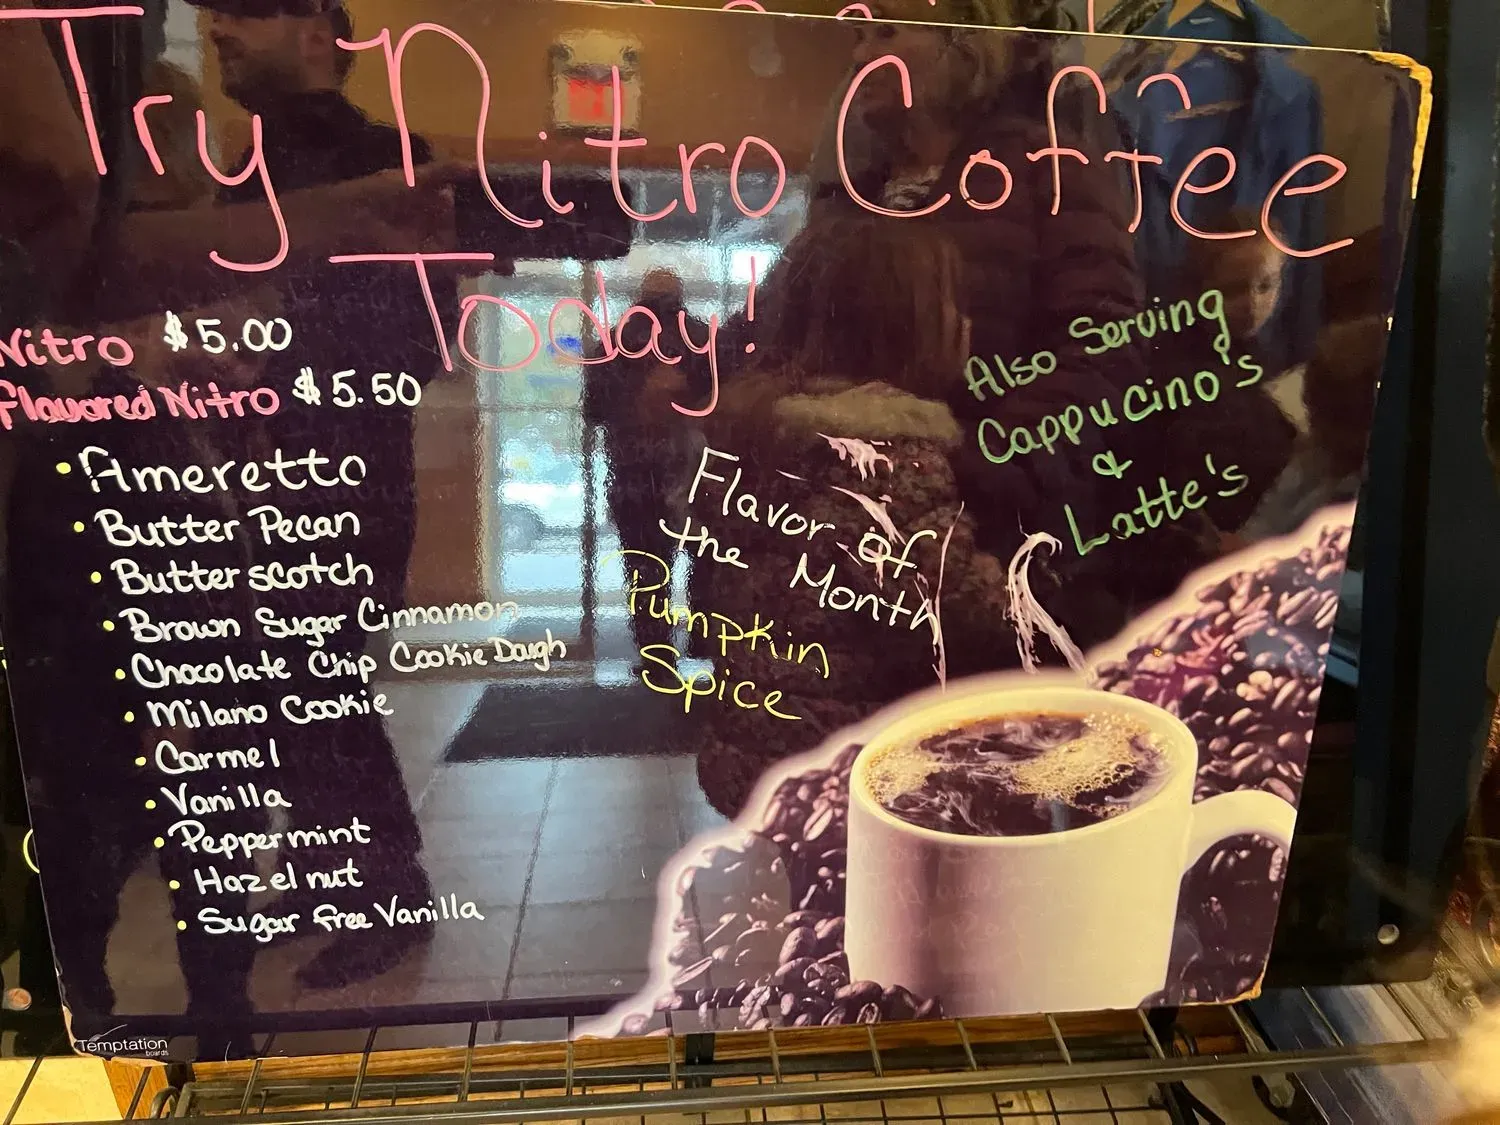 Try Nitro Coffee
Today!
Nitro $5.00
Flavored Nitro $5.50
• Ameretto
• Butter Pecan
• Butter scotch
• Brown Sugar Cinnamon
• Chocolate Chip Cookie Dough
• Milano Cookie
• Carmel
• Vanilla
• Peppermint
• Hazelnut
• Sugar free Vanilla
Flavor of
the Month
Pumpkin
Spice
Also Serving
Cappucino's
&
Latte's
Temptation
boards